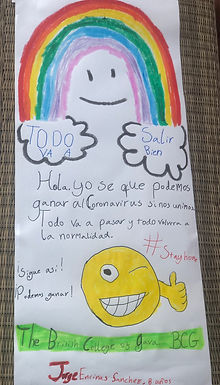 TODO
VA A
Salir
Bien
Hola, yo se que podemos
ganar al Coronavirus si nos unimos
Todo va a pasar y todo volvera a
la normalidad.
#Stayhome
¡Sigue asi!
Podemos ganar!
The British College of Gava BCG
Jorge Encinas Sanchez, 8 años